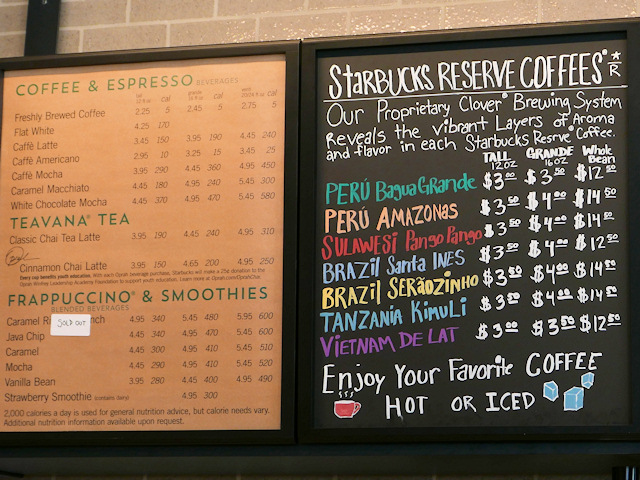 COFFEE & ESPRESSO BEVERAGES
tall 12 fl oz cal grande 16 fl oz cal venti cal
Freshly Brewed Coffee 2.25 5 2.45 5 2.75 5
Flat White 4.25 170
Caffè Latte 3.45 150 3.95 190 4.45 240
Caffè Americano 2.95 10 3.25 15 3.45 25
Caffè Mocha 3.95 290 4.45 360 4.95 450
Caramel Macchiato 4.45 180 4.95 240 5.45 300
White Chocolate Mocha 4.45 370 4.95 470 5.45 580
TEAVANA® TEA
Classic Chai Tea Latte 3.95 190 4.45 240 4.95 310
Cinnamon Chai Latte 3.95 150 4.65 200 4.95 250
Every cup benefits youth education. With each Oprah beverage purchase, Starbucks will make a 25¢ donation to the
Oprah Winfrey Leadership Academy Foundation to support youth education. Learn more at Oprah.com/OprahChai.
FRAPPUCCINO® & SMOOTHIES
BLENDED BEVERAGES
Caramel Ri SOLD OUT nch 4.95 340 5.45 480 5.95 600
Java Chip 4.45 340 4.95 470 5.45 600
Caramel 4.45 300 4.95 410 5.45 510
Mocha 4.45 290 4.95 410 5.45 520
Vanilla Bean 3.95 280 4.45 400 4.95 490
Strawberry Smoothie (contains dairy) 4.95 300
2,000 calories a day is used for general nutrition advice, but calorie needs vary.
Additional nutrition information available upon request.
StARBUCKS RESERVE COFFEES* ★R
Our Proprietary Clover® Brewing System
Reveals the vibrant Layers of Aroma
and flavor in each Starbucks Resrve® Coffee.
TALL 12oz GRANDE 16oz Whole Bean
PERÚ Bagua Grande $3.00 $3.50 $12.50
PERU AMAZONAS $3.50 $4.00 $14.50
SULAWESI Pango Pango $3.50 $4.00 $14.50
BRAZIL Santa INES $3.50 $4.00 $12.50
BRAZIL SERÃOZINHO $3.50 $4.00 $14.50
TANZANIA KINULI $3.50 $4.00 $14.50
VIETNAM DE LAT $3.00 $3.50 $12.50
Enjoy Your Favorite COFFEE
HOT OR ICED